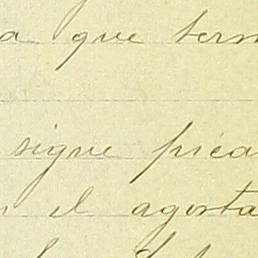 a que term
sigue pica
n el agosta